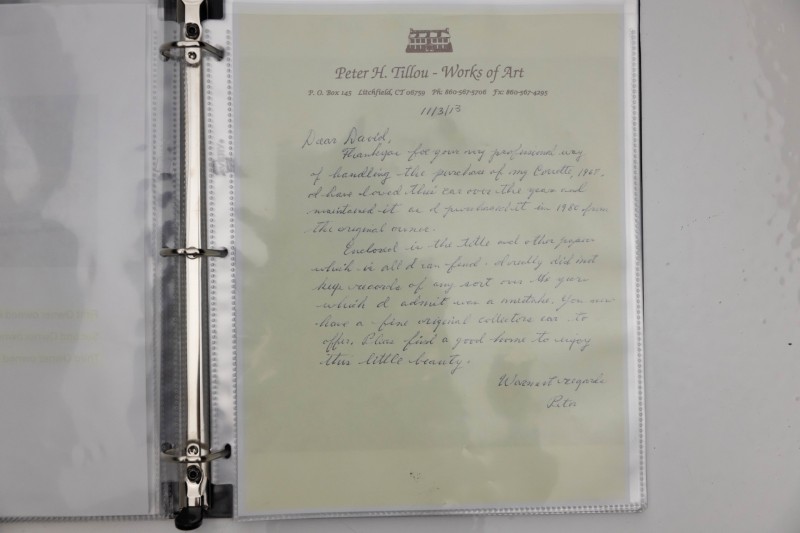 Peter H. Tillou - Works of Art
P. O. Box 145 Litchfield, CT 06759 Ph: 860-567-5706 Fx: 860-567-4293
11/3/13
Dear David,
Thankyou for your very professional way
of handling the purchase of my Corvette, 1965.
I have loved this car over the years and
maintained it as I purchased it in 1966 from
the original owner.
Enclosed is the Title and other papers
which is all I can find - I really did not
keep records of any sort over the years
which I admit was a mistake. You now
have a fine original collectors car to
offer. Please find a good home to enjoy
this little beauty.
Warmest regards
Peter